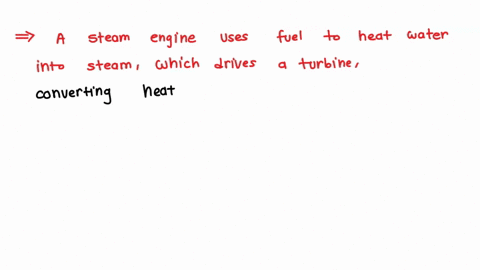 ⇒ A steam engine uses fuel to heat water
into steam, which drives a turbine,
converting heat